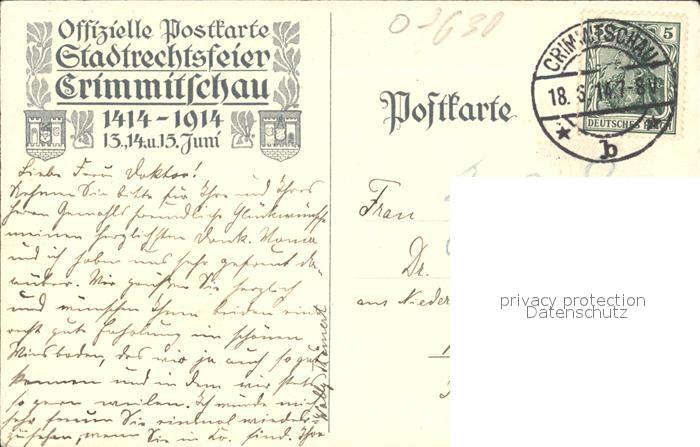 Offizielle Postkarte
Stadtrechtsfeier
Crimmitschau
1414-1914
13., 14. u. 15. Juni
0-3630
CRIMMITSCHAU
18. 6. 14. 7-8 V.
b
5
DEUTSCHES REICH
Postkarte
Liebe Frau Doktor!
Nehmen Sie bitte für Ihre und Ihres
Herrn Gemahls freundliche Glückwünsche
meinen herzlichsten Dank. Mama
und ich haben uns sehr gefreut da-
rüber. Wir grüßen Sie herzlich
und wünschen Ihnen beiden eine
recht gute Erholung im schönen
Wiesbaden, das wir ja auch so gut
kennen und in dem wir stets
so gern weilen. Ich würde mich
sehr freuen Sie einmal wieder-
zusehen, wenn Sie in Cr. sind. Ihre
Frau
Dr.
aus Nieder
privacy protection
Datenschutz